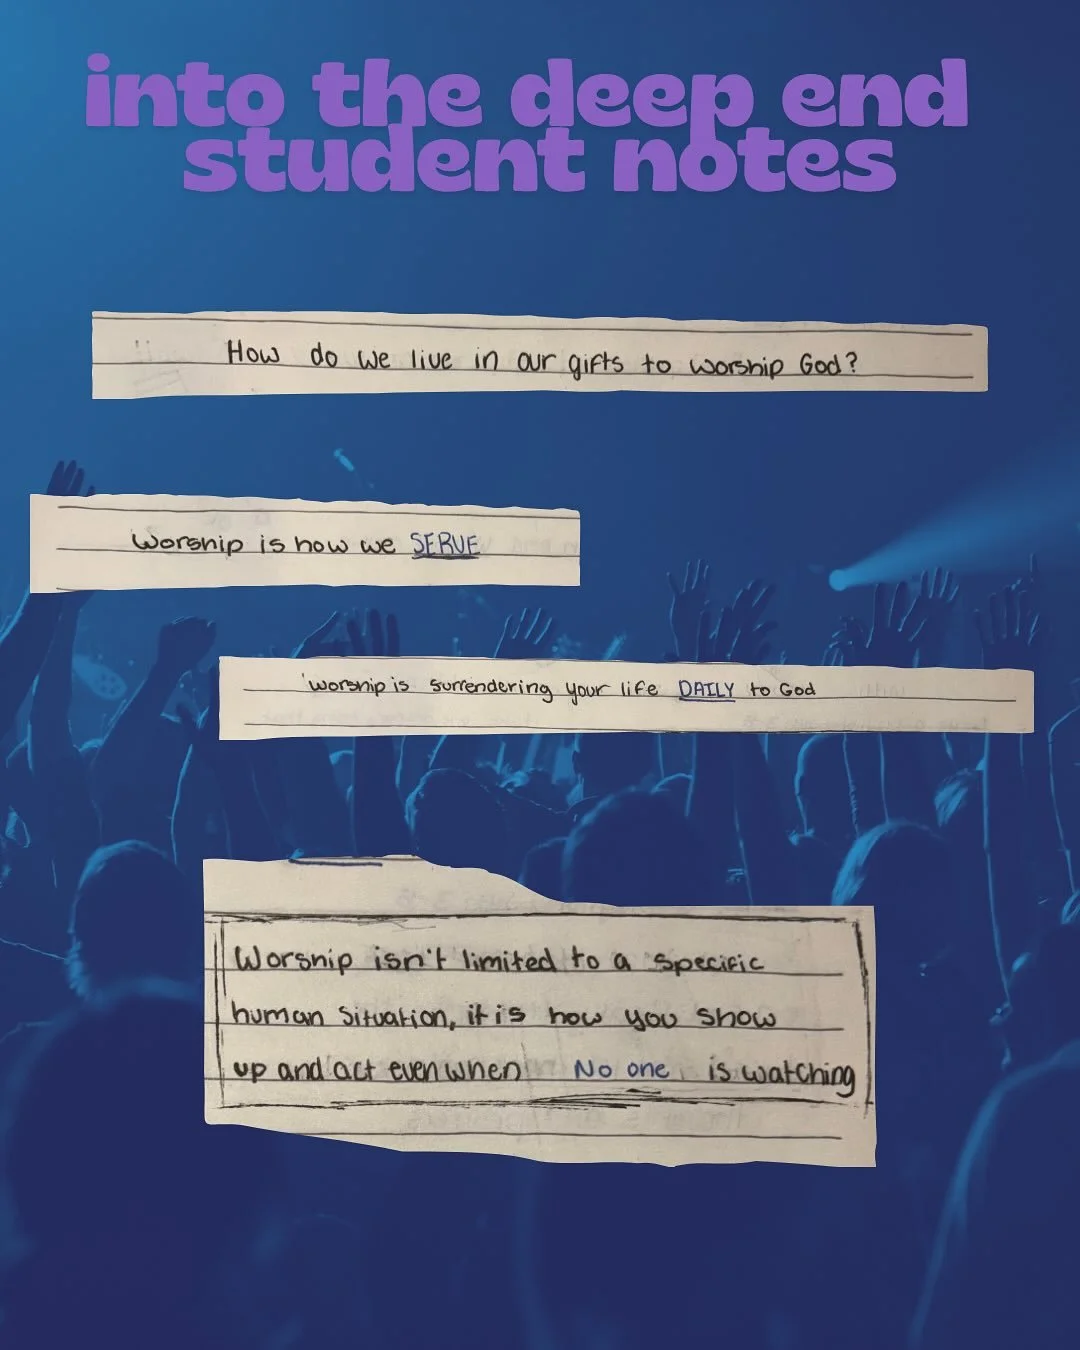 into the deep end
student notes
How do we live in our gifts to worship God?
Worship is how we SERVE
worship is surrendering your life DAILY to God
Worship isn't limited to a specific
human situation, it is how you show
up and act even when No one is watching